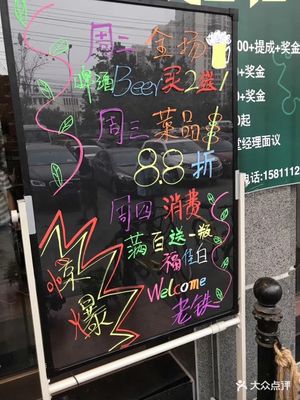 周三 全场
啤酒Beer买2送1
周三 菜品
8.8折
周四 消费
满百送一瓶
福佳白
Welcome
老铁
惊
爆
00+提成+奖金
+奖金
+奖金
起
经理面议
电话:15811
大众点评